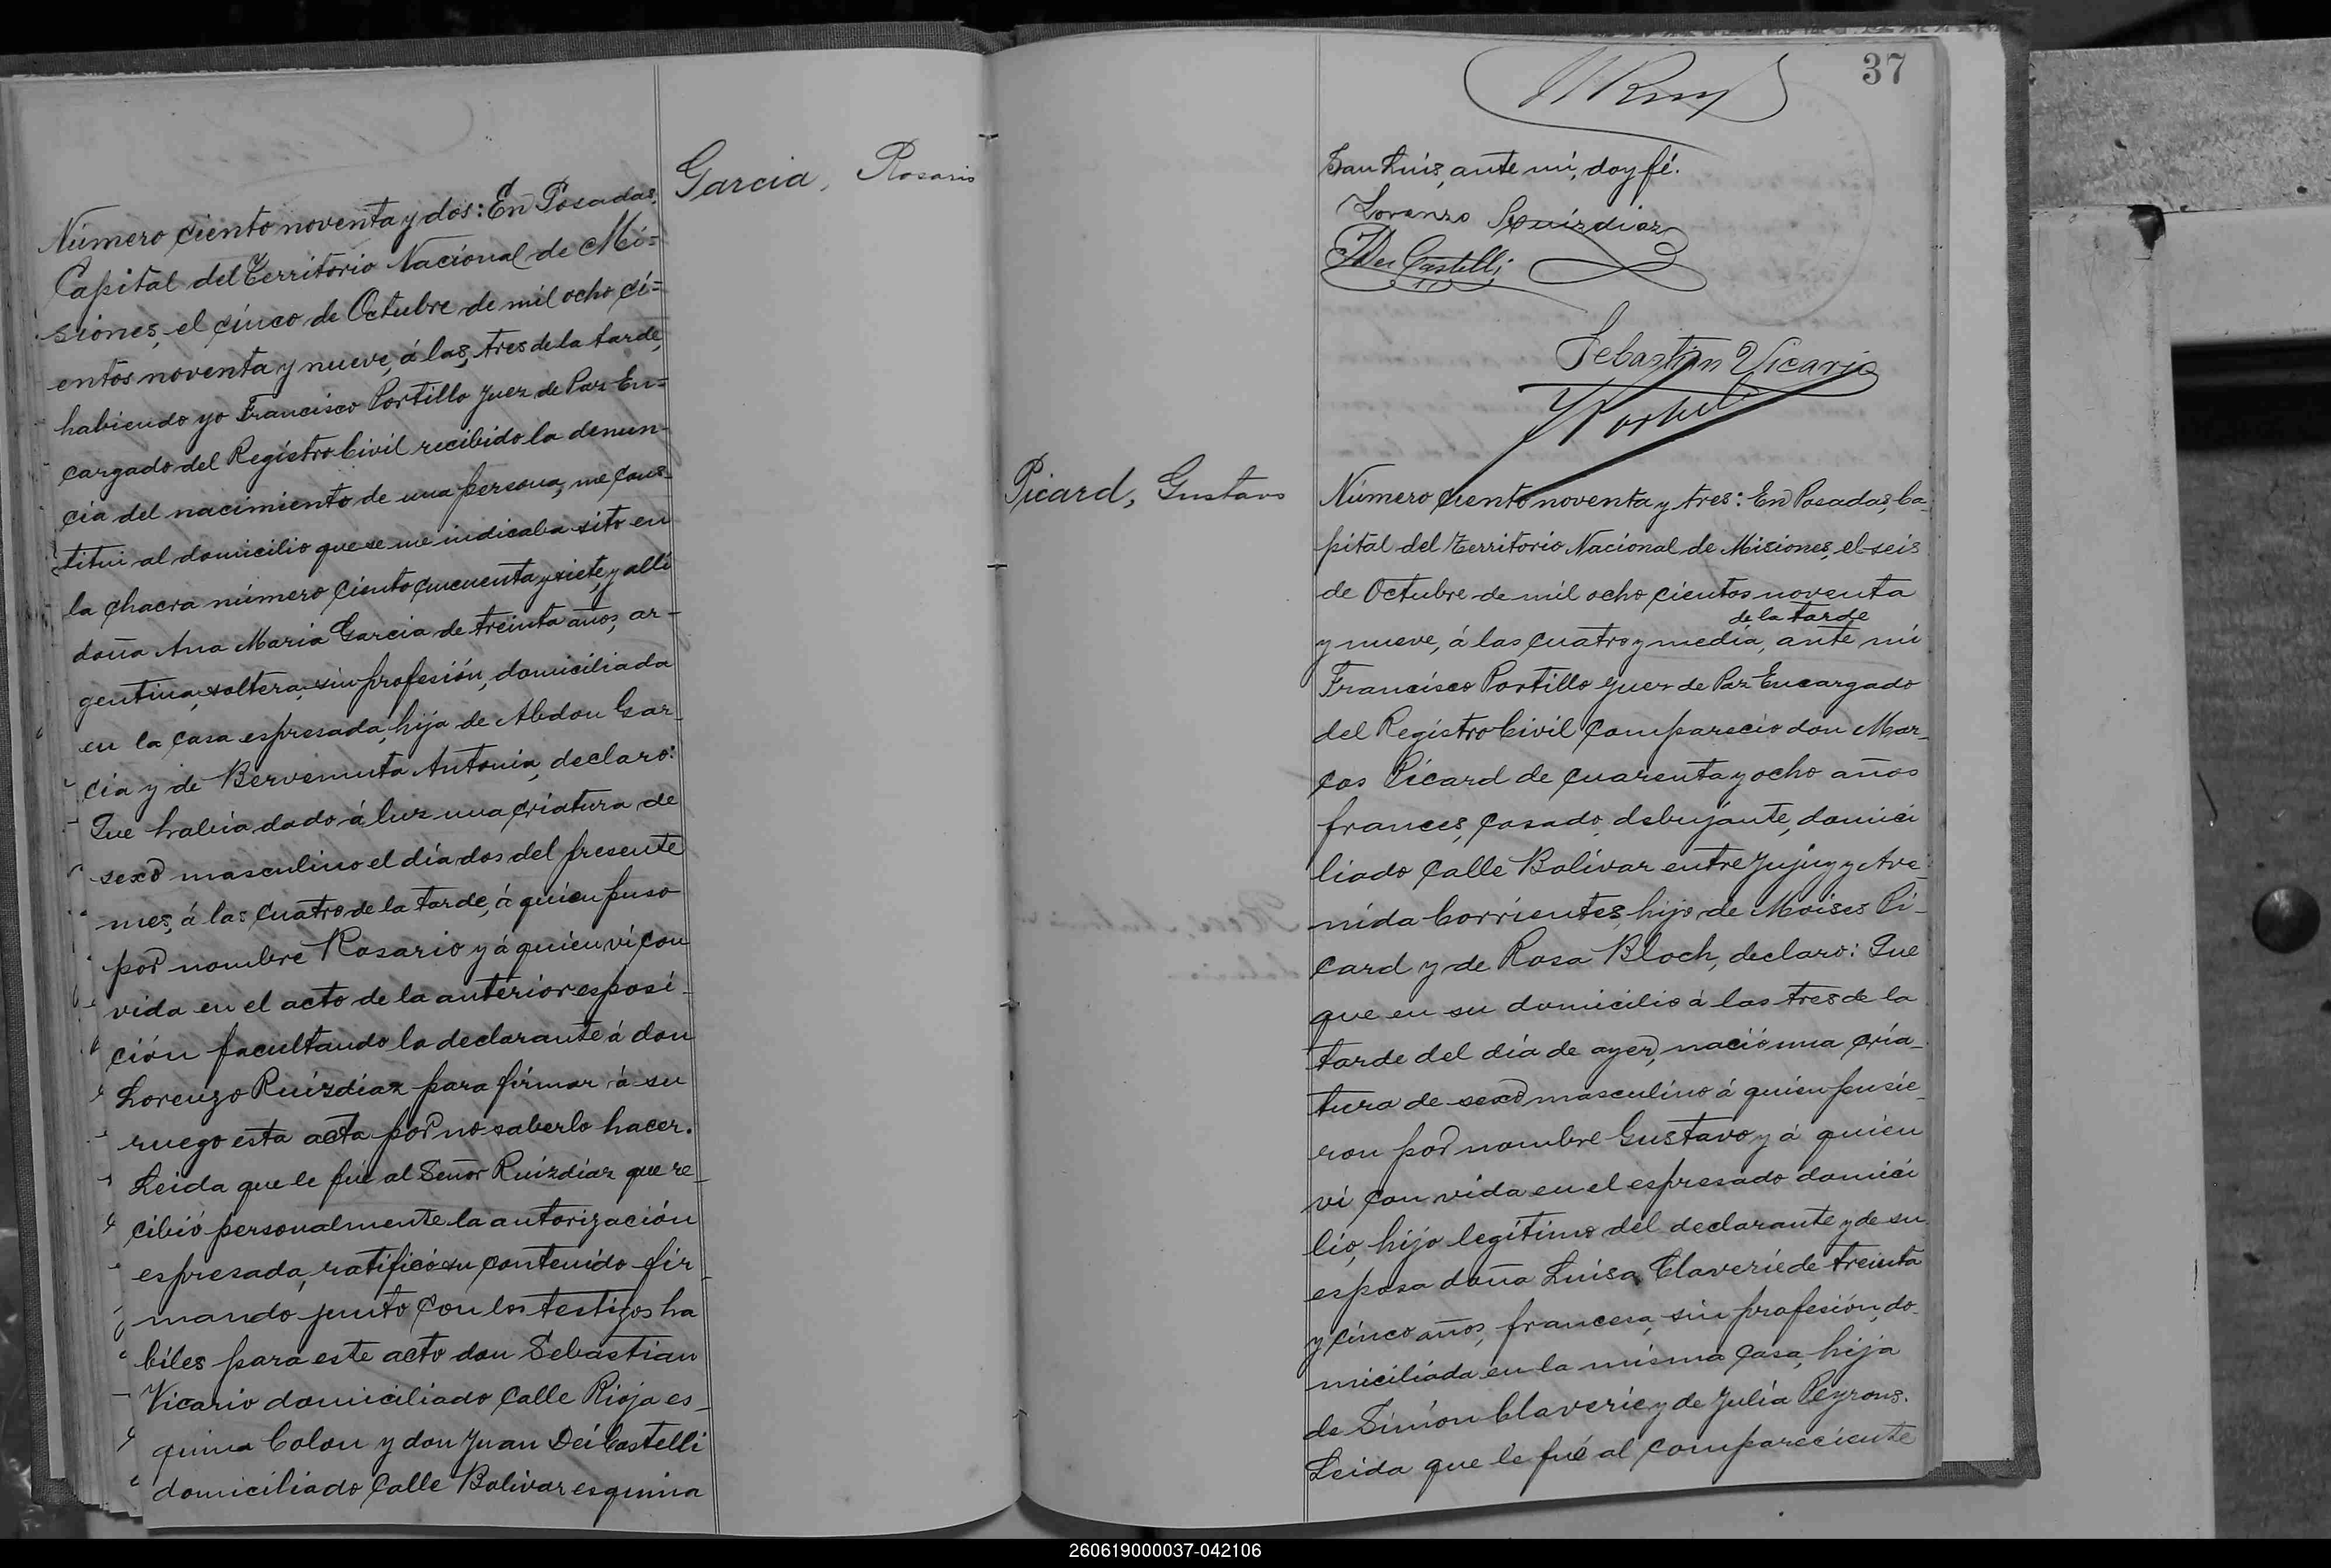 Garcia, Rosario
Número ciento noventa y dos: En Posadas,
Capital del Territorio Nacional de Mi=
siones, el cinco de Octubre de mil ocho ci=
entos noventa y nueve, á las, tres de la tarde,
habiendo yo Francisco Portillo Juez de Paz En=
cargado del Registro Civil recibido la denun-
cia del nacimiento de una persona, me cons-
titui al domicilio que se me indicaba sito en
la chacra número ciento cincuenta y siete, y alli
doña Ana Maria Garcia de treinta años, ar-
gentina, soltera, sin profesión, domiciliada
en la casa espresada, hija de Abdon Gar-
cia y de Antonia, declaro:
Que habia dado á luz una criatura de
sexo masculino el día dos del presente
mes, á las cuatro de la tarde, á quien puso
por nombre Rosario y á quien ví con
vida en el acto de la anterior esposi-
ción facultando la declarante á don
Lorenzo Ruizdiaz para firmar á su
ruego esta acta por no saberlo hacer.
Leida que le fué al Señor Ruizdiaz que re-
cibió personalmente la autorización
espresada, ratificó su contenido fir-
mando junto con los testigos ha
biles para este acto don Sebastian
Vicario domiciliado Calle Rioja es-
quina Colon y don Juan Dei Castelli
domiciliado Calle Bolivar esquina
37
San Luis, ante mi, doy fé.
Lorenzo Ruizdiaz
Dei Castelli
Sebastian Vicario
Picard, Gustavo
Número ciento noventa y tres: En Posadas, Ca-
pital del Territorio Nacional de Misiones, el seis
de Octubre de mil ocho cientos noventa
de la tarde
y nueve, á las cuatro y media, ante mi
Francisco Portillo Juez de Paz Encargado
del Registro Civil compareció don Mar-
cos Picard de cuarenta y ocho años
frances, casado, debujante, domici
liado calle Bolivar entre Jujuy y Ave-
nida Corrientes, hijo de Moises Pi-
card y de Rosa Bloch, declaro: Que
que en su domicilio á las tres de la
tarde del día de ayer, nació una cria-
tura de sexo masculino á quien pusie-
ron por nombre Gustavo y á quien
ví con vida en el espresado domici
lio, hijo legítimo del declarante y de su
esposa doña Luisa Claverie de treinta
y cinco años, francesa, sin profesión, do-
miciliada en la misma casa, hija
de Simon Claverie y de Julia Peyrons.
Leida que le fué al compareciente
260619000037-042106